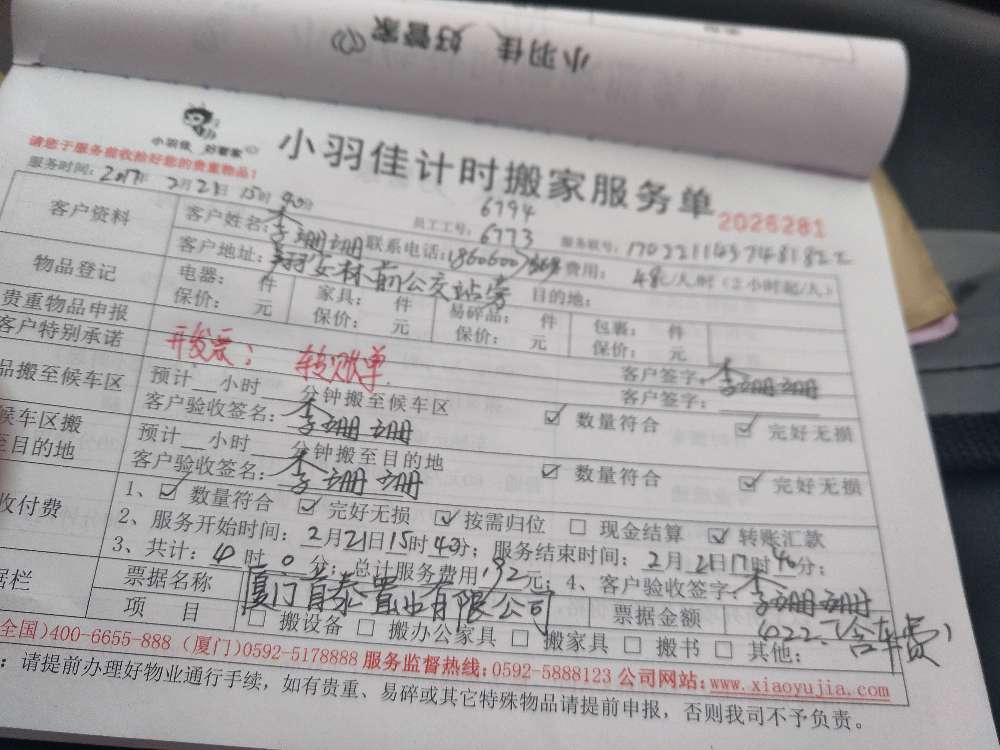 小羽佳 好管家
小羽佳 好管家
小羽佳计时搬家服务单
2026281
请您于服务前收拾好您的贵重物品!
服务时间: 2017年 2月21日 15时40分
员工工号: 6794
6773
服务联号: 17022114374818222
客户资料
客户姓名: 李珊珊 联系电话: 费用: 48/人/时(2小时起/人)
客户地址: 翔安林前公交站旁 目的地:
物品登记
电器: 件 家具: 件 易碎品: 件 包裹: 件
贵重物品申报
保价: 元 保价: 元 保价: 元 保价: 元
客户特别承诺
开发票: 转账单
客户签字: 李珊珊
品搬至候车区
预计 小时 分钟搬至候车区 客户签字:
客户验收签名: 李珊珊 ☑ 数量符合 ☑ 完好无损
候车区搬
至目的地
预计 小时 分钟搬至目的地
客户验收签名: 李珊珊 ☑ 数量符合 ☑ 完好无损
收付费
1、☑ 数量符合 ☑ 完好无损 ☑ 按需归位 □ 现金结算 ☑ 转账汇款
2、服务开始时间: 2月21日15时40分; 服务结束时间: 2月21日17时40分;
3、共计: 时0分; 总计服务费用192元; 4、客户验收签字: 李珊珊
据栏
票据名称 厦门首泰置业有限公司 票据金额 422(含车费)
项 目 □ 搬设备 □ 搬办公家具 □ 搬家具 □ 搬书 □ 其他:
全国)400-6655-888 (厦门)0592-5178888 服务监督热线:0592-5888123 公司网站:www.xiaoyujia.com
: 请提前办理好物业通行手续,如有贵重、易碎或其它特殊物品请提前申报,否则我司不予负责。